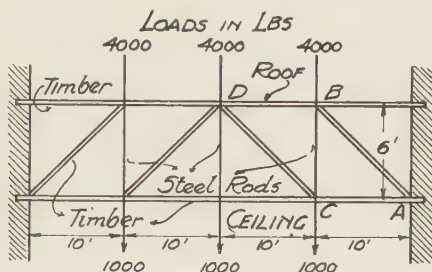 LOADS IN LBS
4000 4000 4000
Timber D ROOF B
6'
Steel Rods
Timber CEILING C A
10' 10' 10' 10'
1000 1000 1000